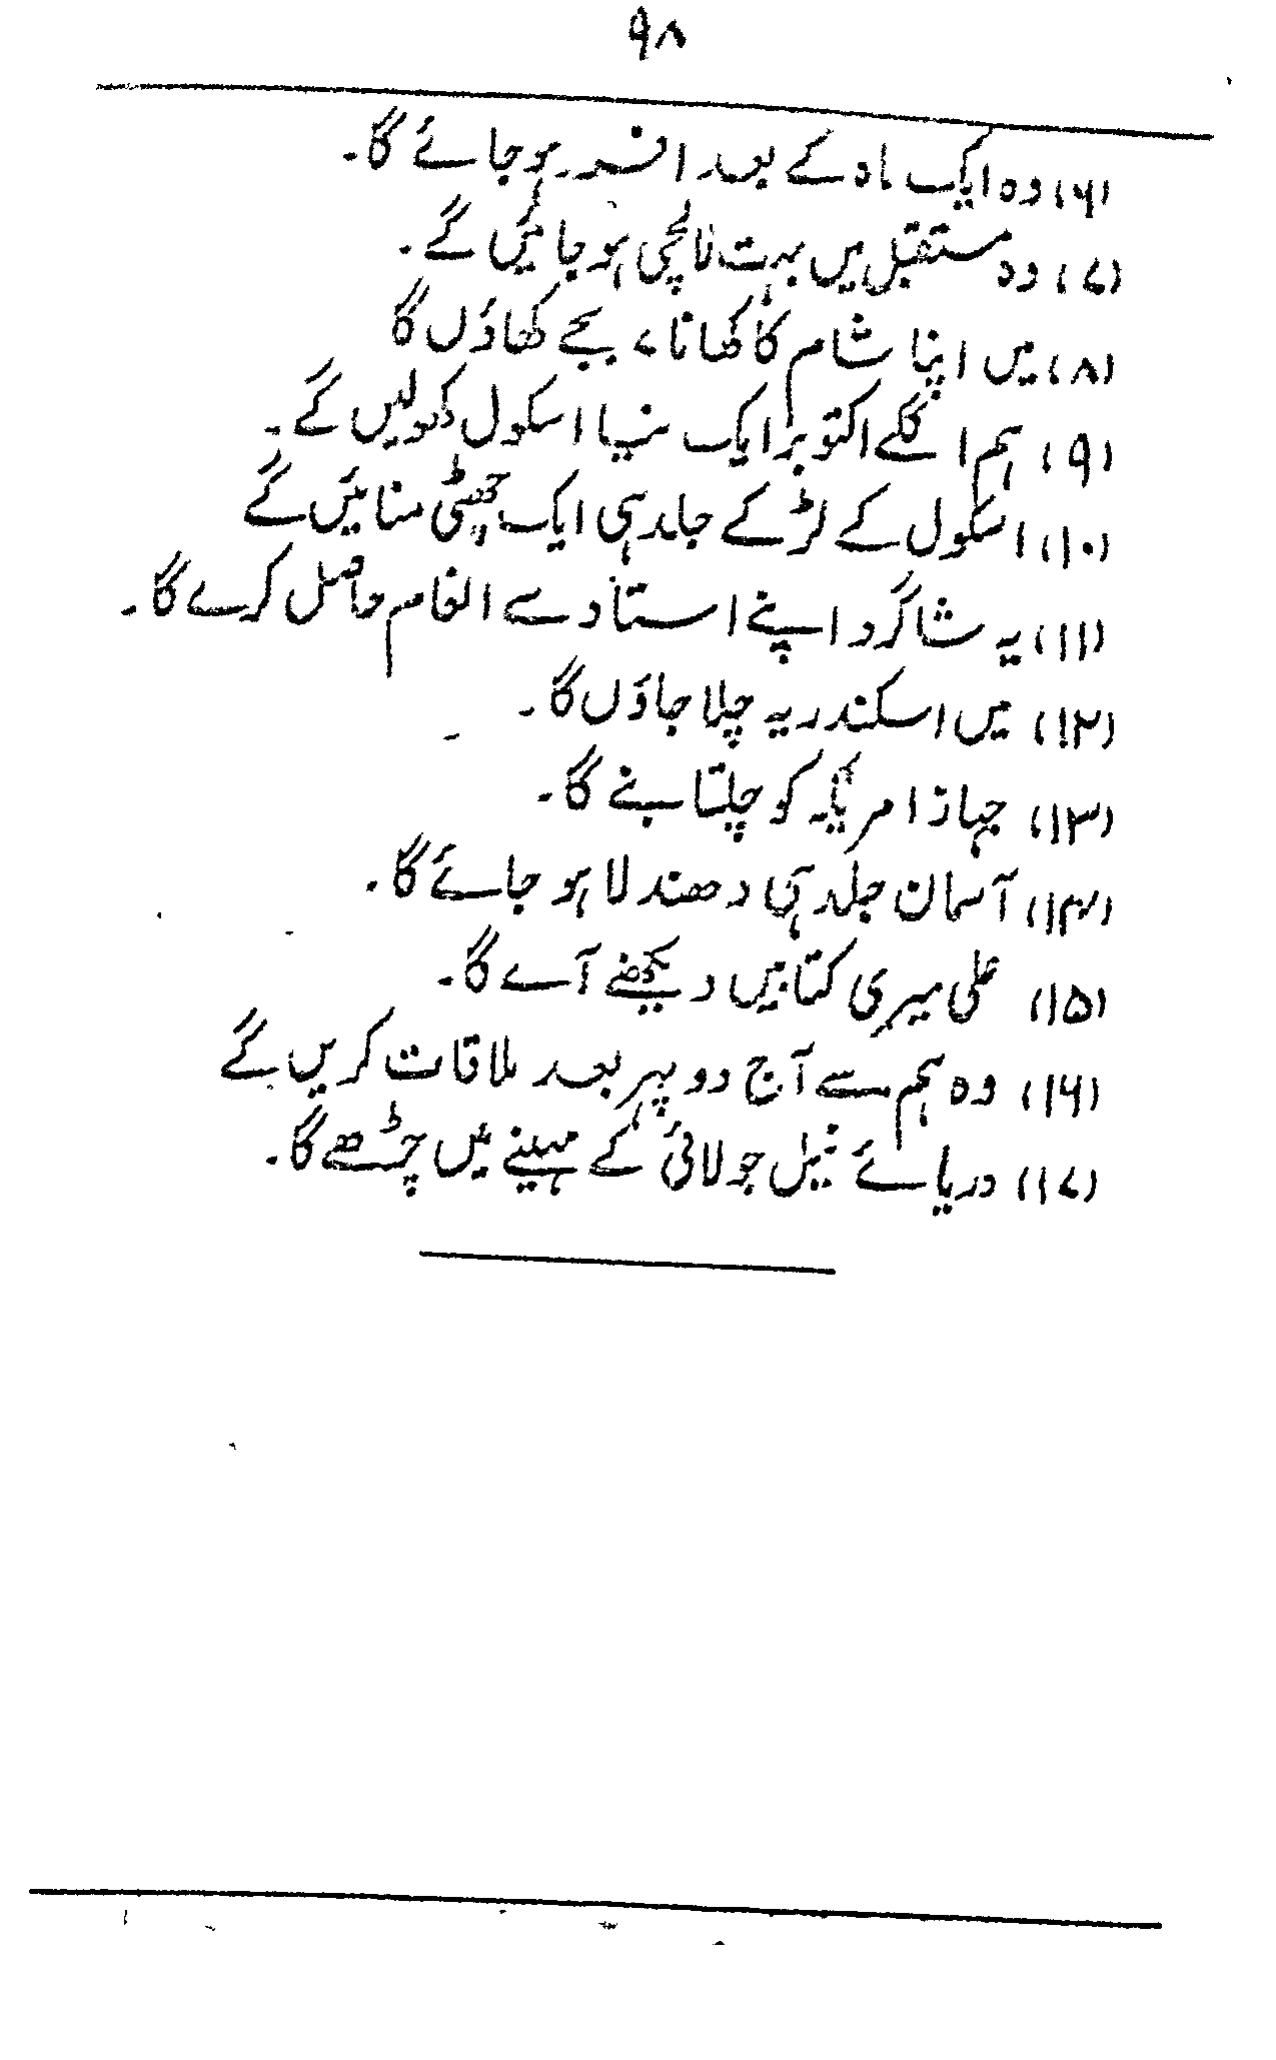 ۹۸
(۶) وہ ایک ماہ کے بعد افسر ہو جائے گا۔
(۷) وہ مستقبل میں بہت لالچی ہو جائیں گے۔
(۸) میں اپنا شام کا کھانا ۷ بجے کھاؤں گا
(۹) ہم اگلے اکتوبر ایک نیا اسکول کھولیں گے۔
(۱۰) اسکول کے لڑکے جلد ہی ایک چھٹی منائیں گے
(۱۱) یہ شاگرد اپنے استاد سے انعام حاصل کرے گا۔
(۱۲) میں اسکندریہ چلا جاؤں گا۔
(۱۳) جہاز امریکہ کو چلتا بنے گا۔
(۱۴) آسمان جلد ہی دھندلا ہو جائے گا۔
(۱۵) علی میری کتابیں دیکھنے آے گا۔
(۱۶) وہ ہم سے آج دوپہر بعد ملاقات کریں گے
(۱۷) دریائے نیل جولائی کے مہینے میں چڑھے گا۔